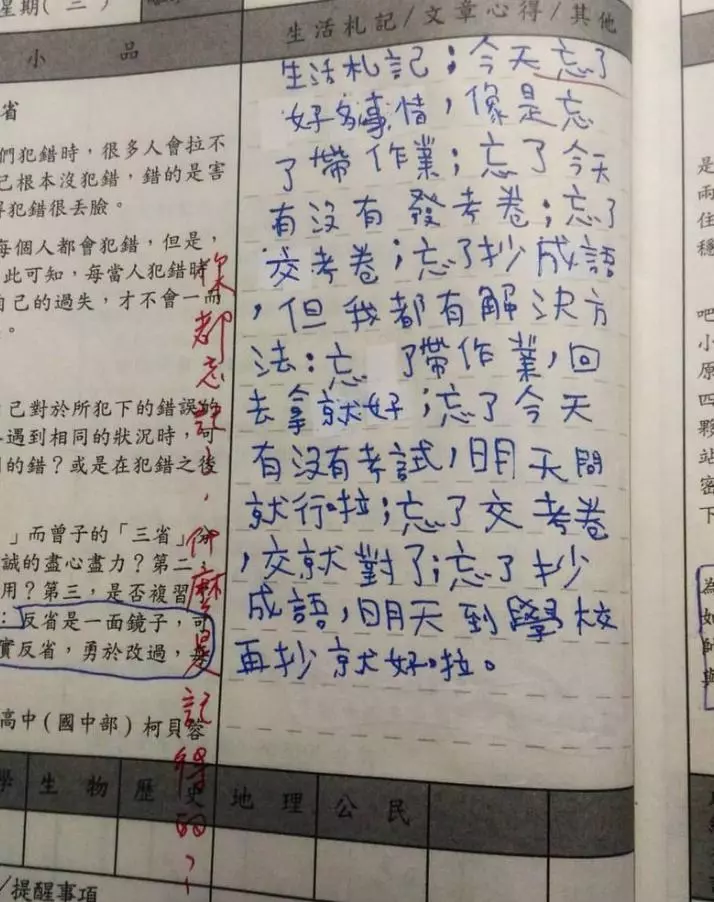 星期(二)
生活札記/文章心得/其他
小品
省
們犯錯時，很多人會拉不
己根本沒犯錯，錯的是害
得犯錯很丟臉。
每個人都會犯錯，但是，
此可知，每當人犯錯時
自己的過失，才不會一而
。
己對於所犯下的錯誤的
遇到相同的狀況時，可
的錯？或是在犯錯之後
」而曾子的「三省」分
誠的盡心盡力？第二，
用？第三，是否複習
：反省是一面鏡子，可
實反省，勇於改過，是
高中(國中部)柯貝蓉
生活札記；今天忘了
好多事情，像是忘
了帶作業；忘了今天
有沒有發考卷；忘了
交考卷；忘了抄成語
，但我都有解決方
法：忘了帶作業，回
去拿就好；忘了今天
有沒有考試，明天問
就行啦；忘了交考卷
，交就對了；忘了抄
成語，明天到學校
再抄就好啦。
你都忘記了，什麼是記得的？
學 生物 歷史 地理 公民
/提醒事項
是
兩
住
穩
吧
小
原
四
夥
站
密
下
為
如
師
與